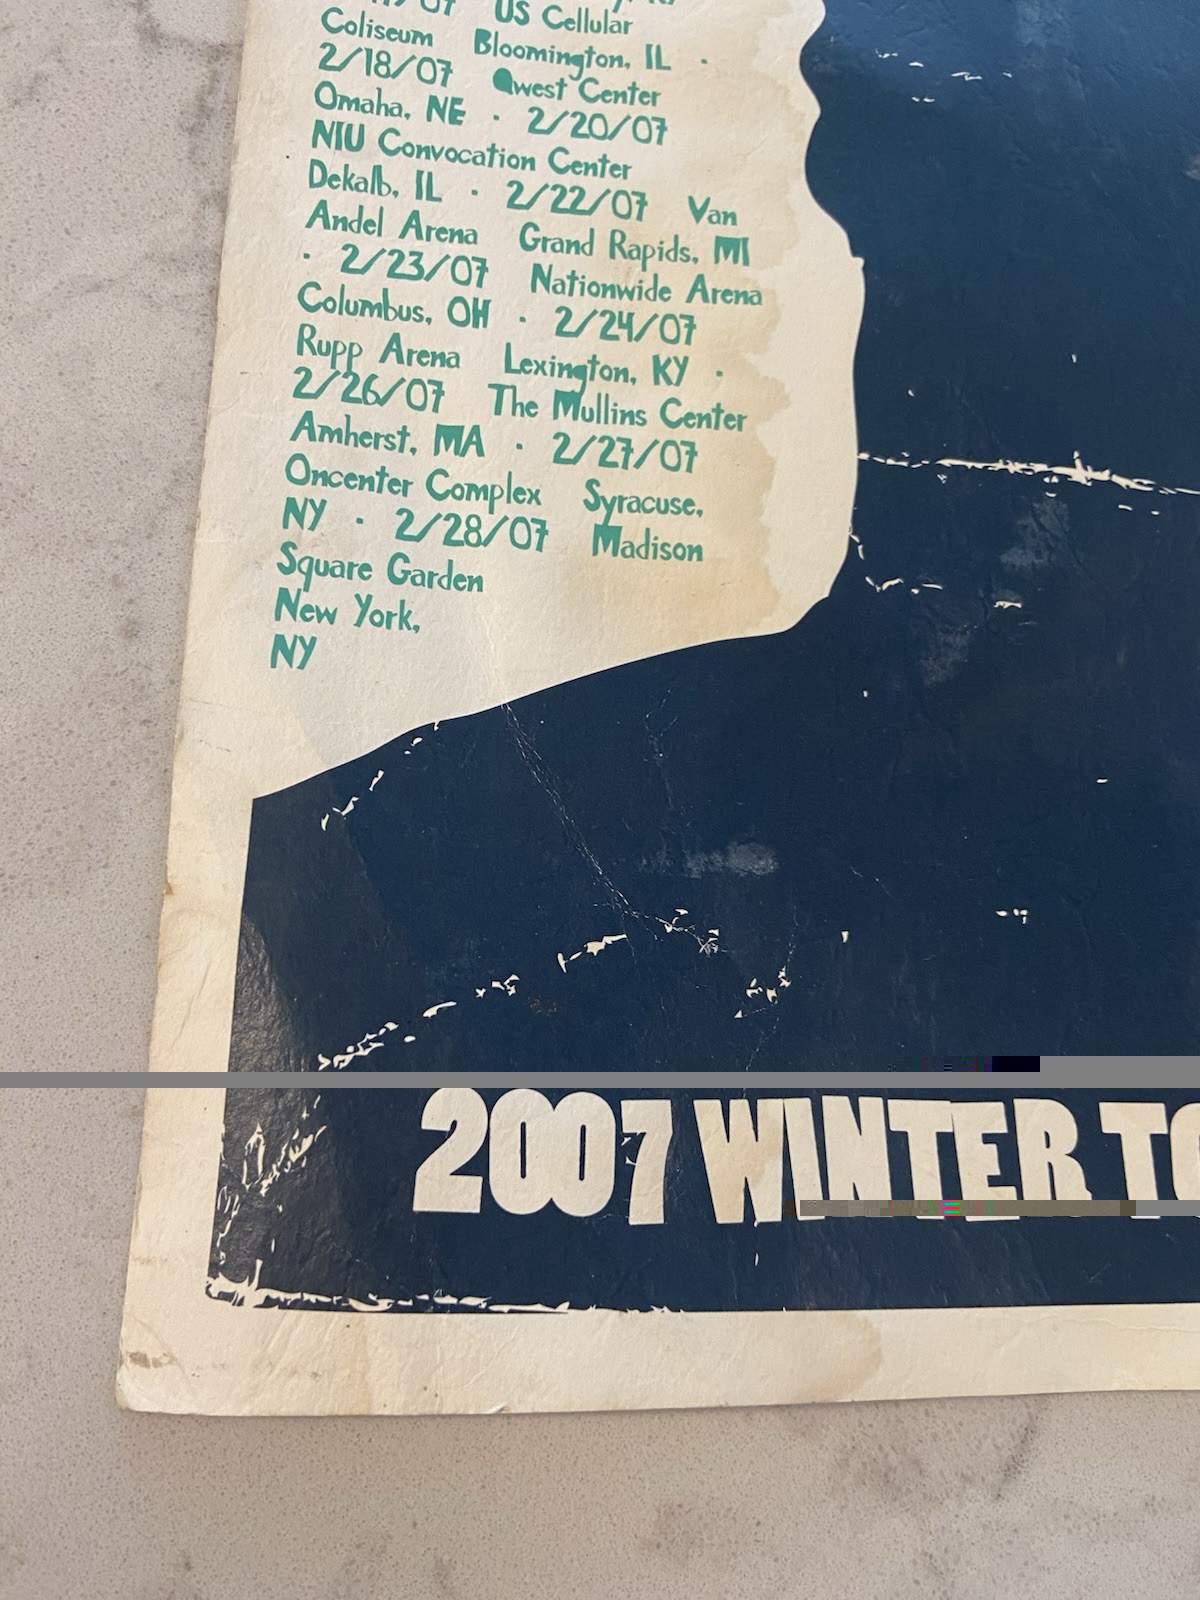 US Cellular
Coliseum Bloomington, IL ·
2/18/07 Qwest Center
Omaha, NE · 2/20/07
NIU Convocation Center
Dekalb, IL · 2/22/07 Van
Andel Arena Grand Rapids, MI
· 2/23/07 Nationwide Arena
Columbus, OH · 2/24/07
Rupp Arena Lexington, KY ·
2/26/07 The Mullins Center
Amherst, MA · 2/27/07
Oncenter Complex Syracuse,
NY · 2/28/07 Madison
Square Garden
New York,
NY
2007 WINTER